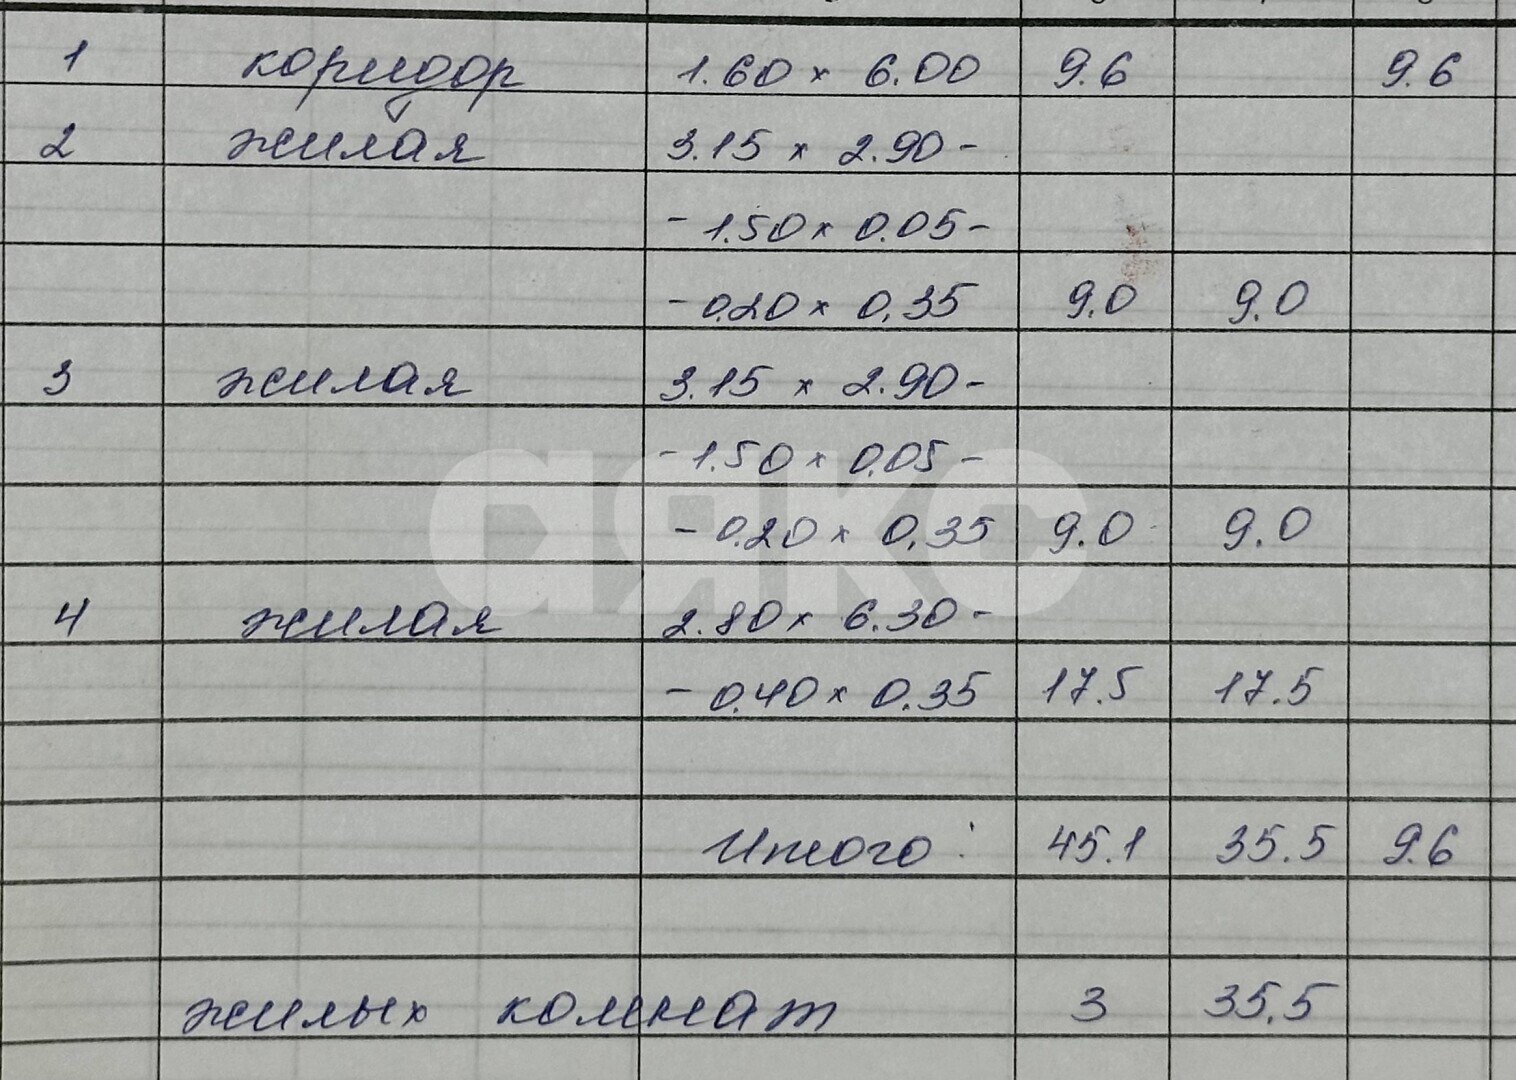 1 коридор 1.60 × 6.00 9.6 9.6
2 жилая 3.15 × 2.90 -
- 1.50 × 0.05 -
- 0.20 × 0.35 9.0 9.0
3 жилая 3.15 × 2.90 -
- 1.50 × 0.05 -
- 0.20 × 0.35 9.0 9.0
аякс
4 жилая 2.80 × 6.30 -
- 0.40 × 0.35 17.5 17.5
Итого: 45.1 35.5 9.6
жилых комнат 3 35.5